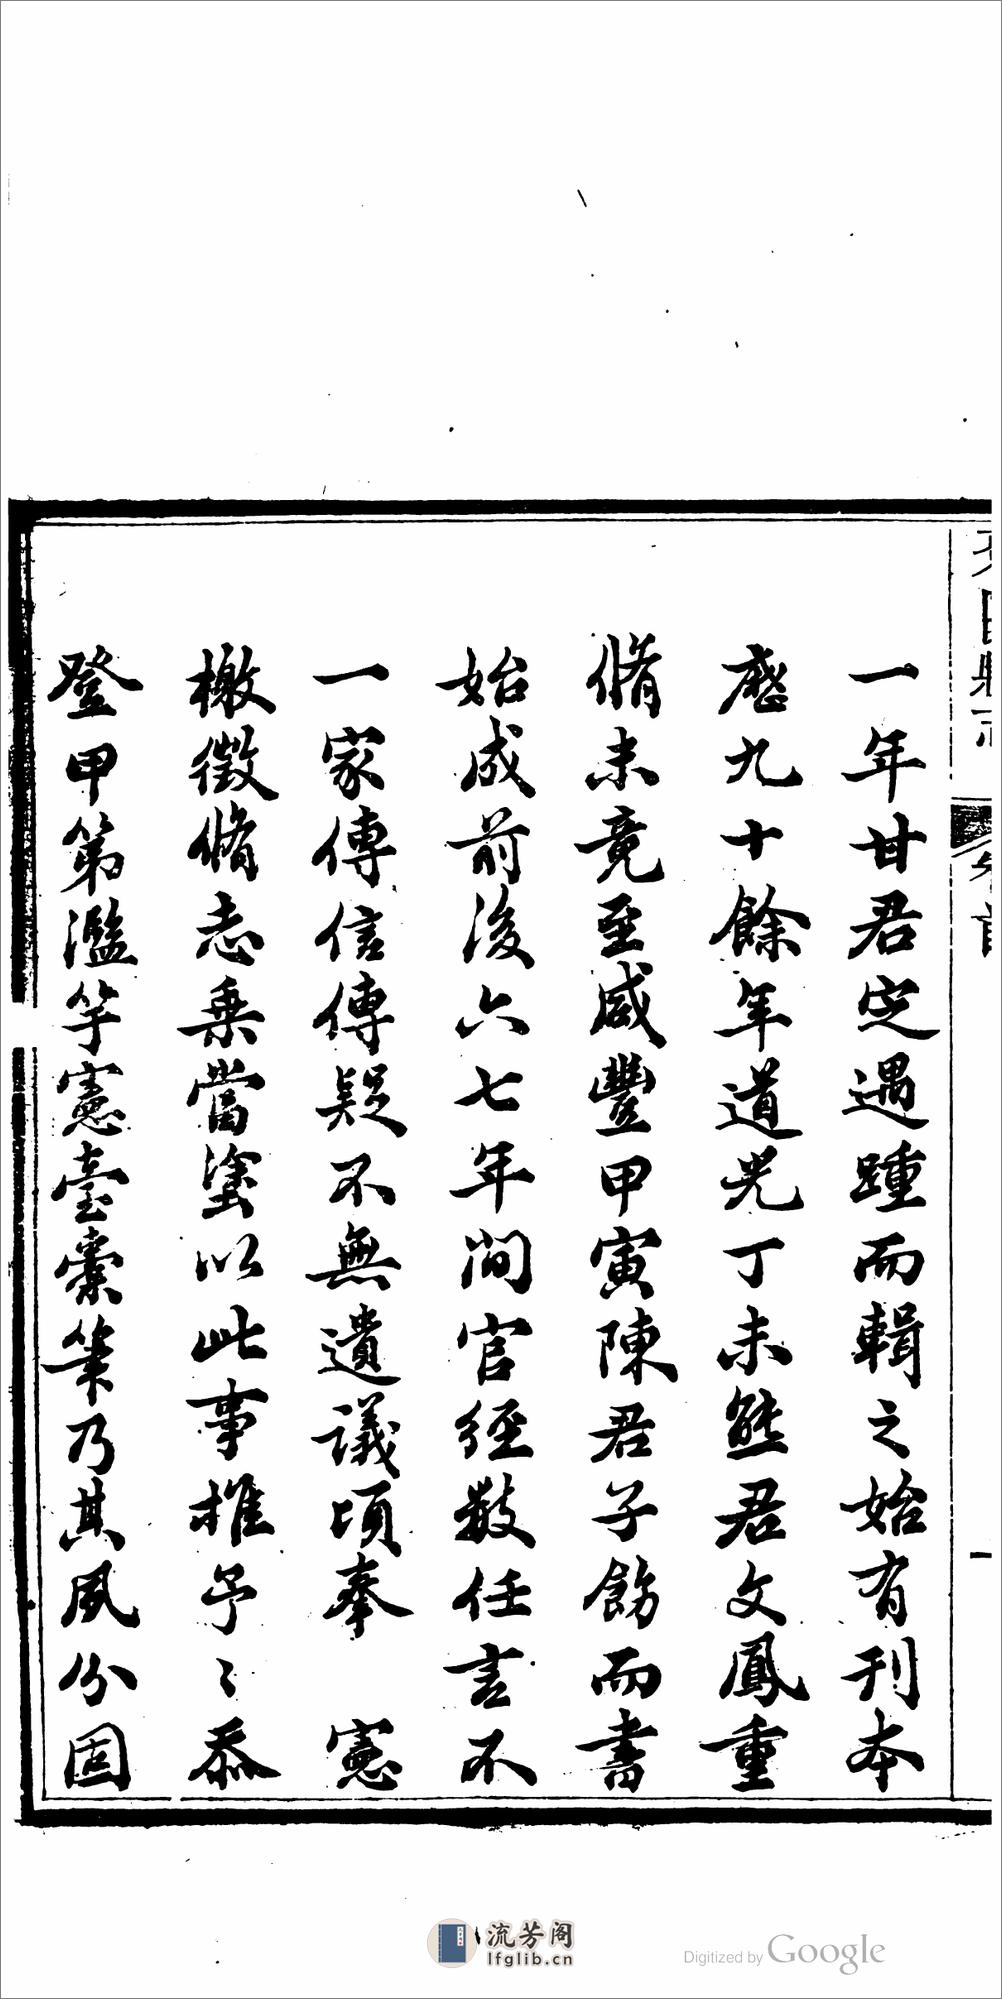 一年甘君定遇踵而輯之始有刊本
歷九十餘年道光丁未熊君文鳳重
脩未竟至咸豐甲寅陳君子飭而書
始成前後六七年間官經數任言不
一家傳信傳疑不無遺議頃奉 憲
檄徵脩志乘當塗以此事推予〻忝
登甲第濫竽憲臺橐筆乃其夙分固
卷首
一
流芳阁
lfglib.cn
Digitized by Google